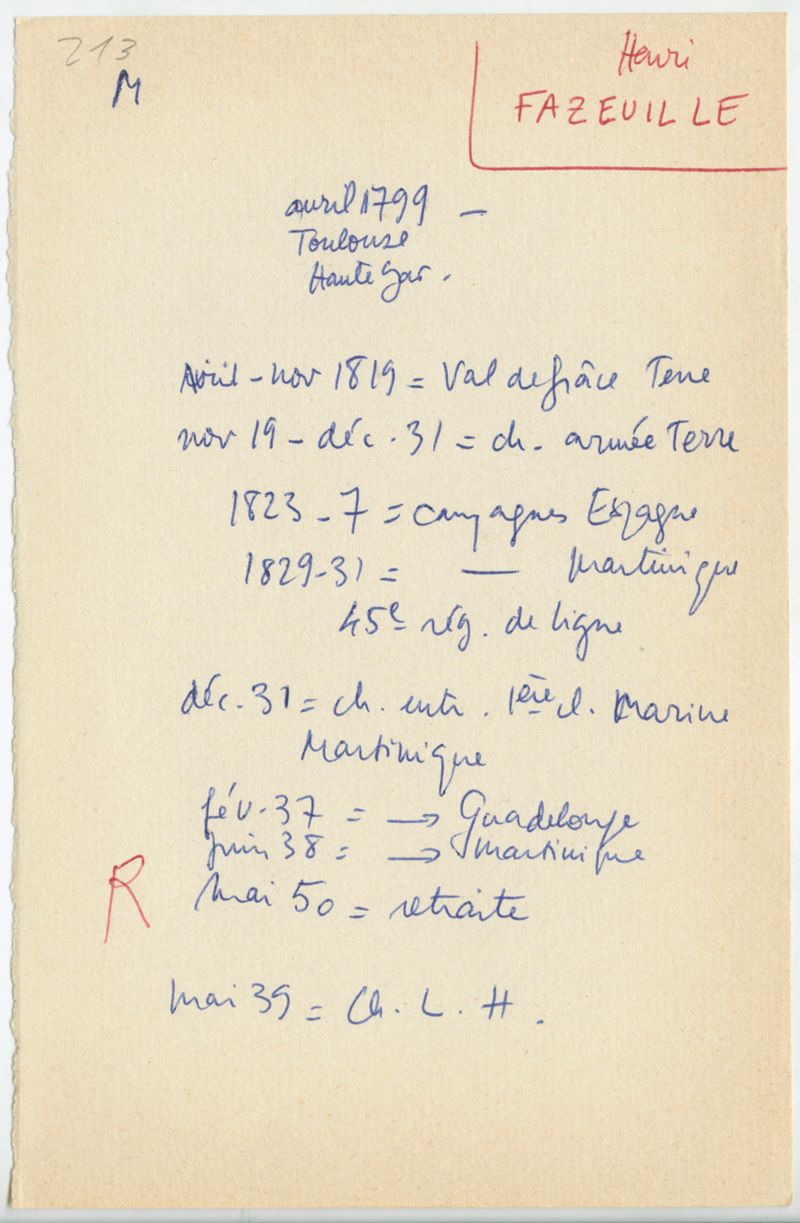 213
M
Henri
FAZEUILLE
avril 1799 —
Toulouse
Haute Gar.
Avril - nov 1819 = Val de grâce Terre
nov 19 - déc. 31 = ch. armée Terre
1823 - 7 = campagnes Espagne
1829-31 = — Martinique
45e rég. de ligne
déc. 31 = ch. entr. 1ère cl. Marine
Martinique
fév. 37 = → Guadeloupe
juin 38 = → Martinique
R
Mai 50 = retraite
Mai 39 = Ch. L. H.